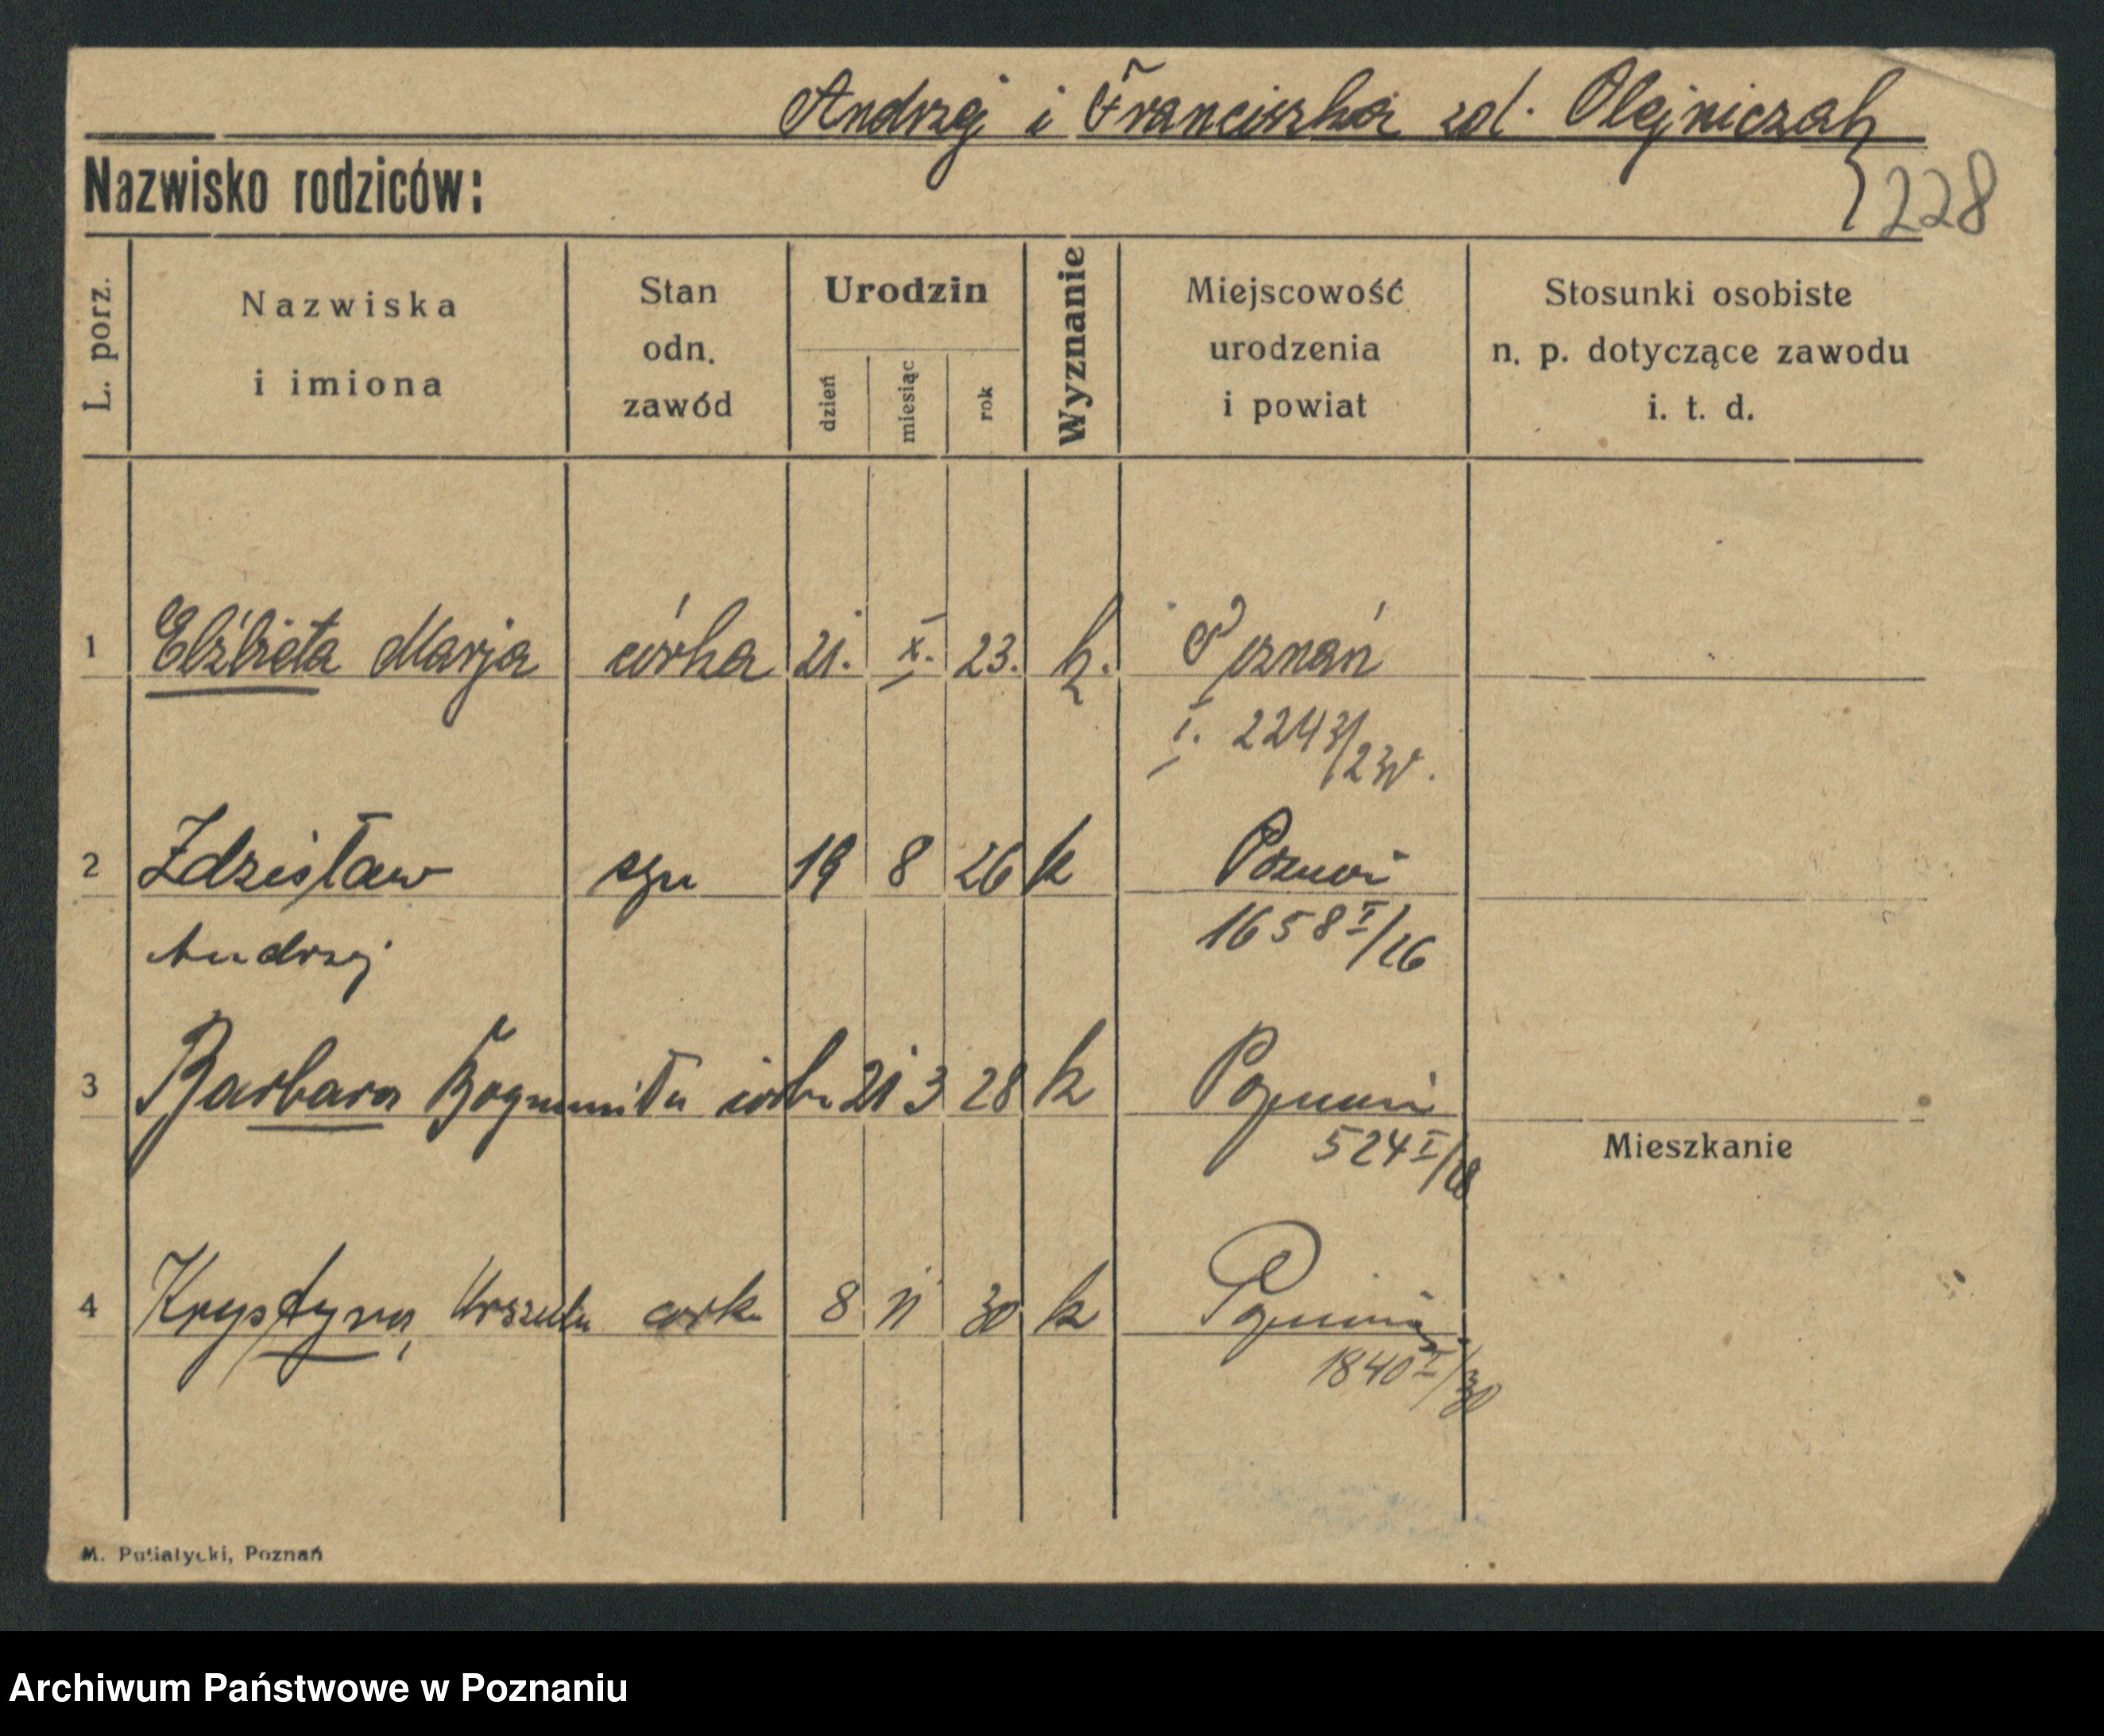 Andrzej i Franciszka zd. Olejniczak
Nazwisko rodziców:
228
L. porz.
Nazwiska
i imiona
Stan
odn.
zawód
Urodzin
dzień
miesiąc
rok
Wyznanie
Miejscowość
urodzenia
i powiat
Stosunki osobiste
n. p. dotyczące zawodu
i. t. d.
1 Elżbieta Marja córka 21. X. 23. k. Poznań
I. 2243/23
2 Zdzisław syn 19 8 26 k Poznań
Andrzej 1658 I/26
3 Barbara Bogumiła córka 21 3 28 k Poznań
524 I/28
Mieszkanie
4 Krystyna, Urszula córka 8 11 30 k Poznań
1840 I/30
M. Putiatycki, Poznań
Archiwum Państwowe w Poznaniu